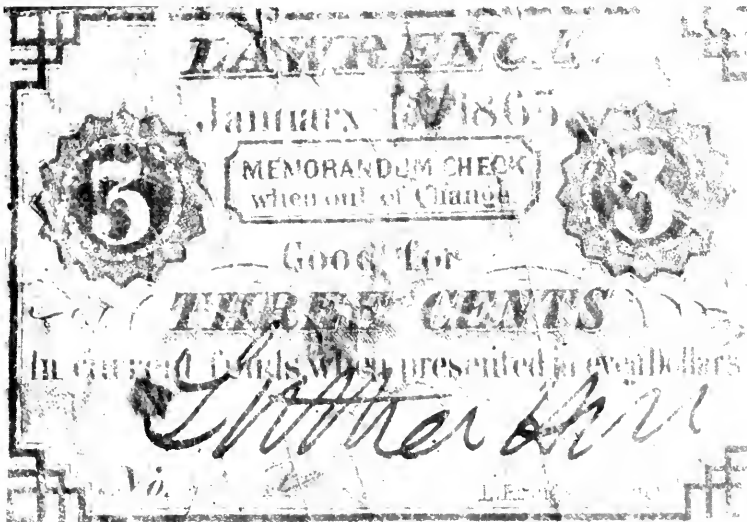 LAWRENCE.
January 1865.
3 MEMORANDUM CHECK 3
when out of Change.
Good for
THREE CENTS
In current funds, when presented in even Dollars
No.